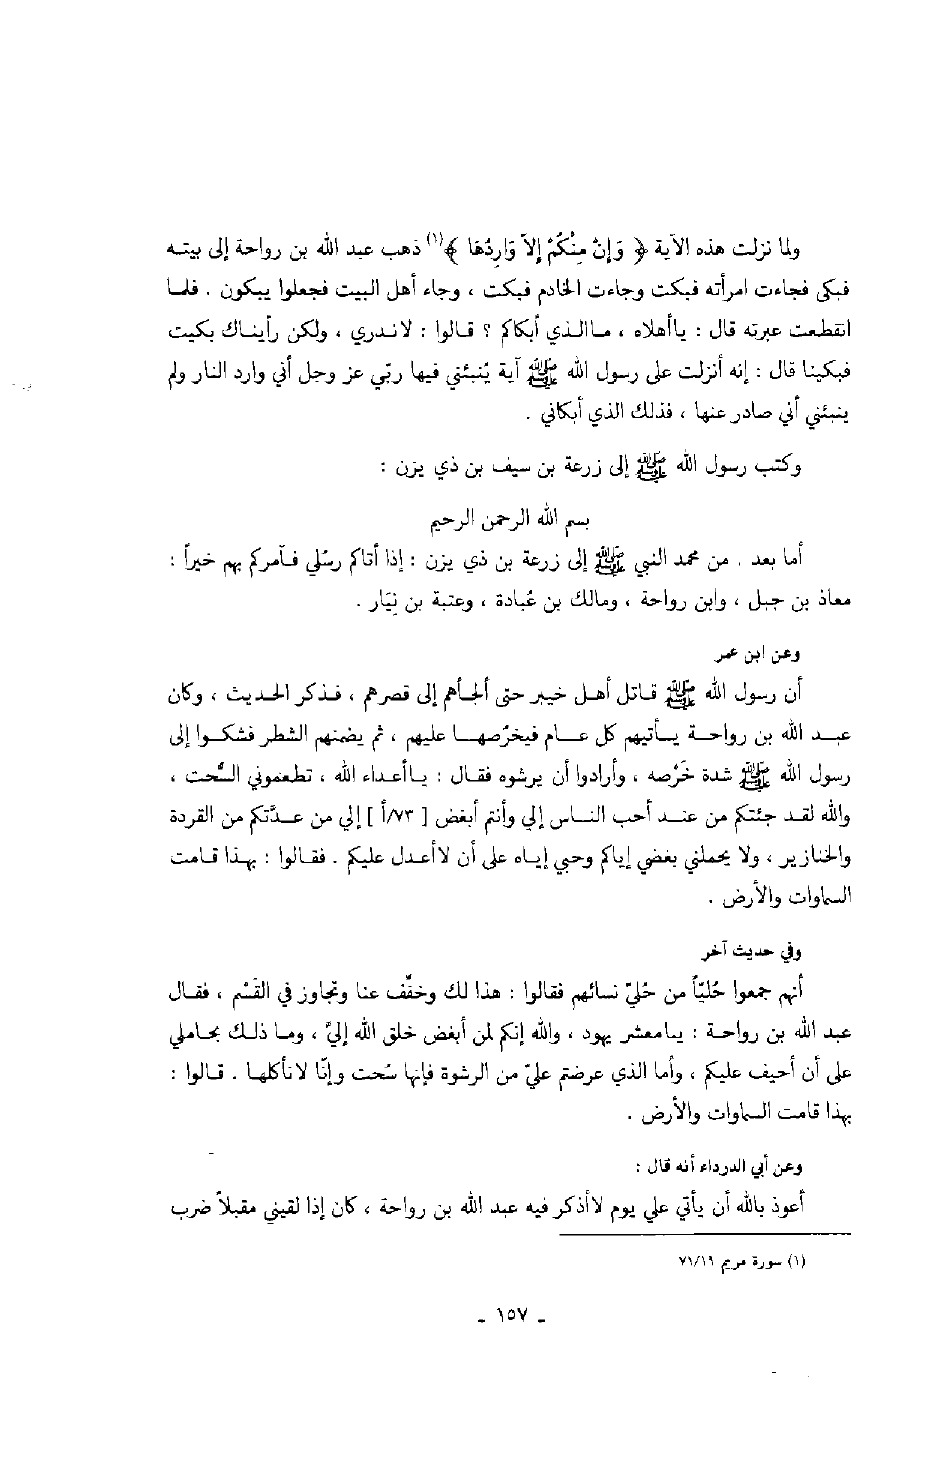 ولما نزلت هذه الآية ﴿ وَإِنْ مِنْكُمْ إِلاّ وَارِدُهَا ﴾(١) ذهب عبد الله بن رواحة إلى بيتـه
فبكى فجاءت امرأته فبكت وجاءت الخادم فبكت ، وجاء أهل البيت فجعلوا يبكون . فلمـا
انقطعت عبرته قال : ياأهلاه ، مـاالـذي أبكاكم ؟ قـالوا : لاندري ، ولكن رأينـاك بكيت
فبكينا قال : إنه أنزلت على رسول الله ﷺ آية يُنبئني فيها ربّي عز وجل أني وارد النار ولم
ينبئني أني صادر عنها ، فذلك الذي أبكاني .
وكتب رسول الله ﷺ إلى زرعة بن سيف بن ذي يزن :
بسم الله الرحمن الرحيم
أما بعد . من محمد النبي ﷺ إلى زرعة بن ذي يزن : إذا أتاكم رسُلي فـآمركم بهم خيراً :
معاذ بن جبل ، وابن رواحة ، ومالك بن عُبادة ، وعتبة بن نِيَار .
وعن ابن عمر
أن رسول الله ﷺ قـاتل أهـل خيبر حتى ألجـأهم إلى قصرهم ، فـذكر الحـديث ، وكان
عبـد الله بن رواحـة يـأتيهم كل عـام فيخرّصهـا عليهم ، ثم يضمنهم الشطر فشكـوا إلى
رسول الله ﷺ شدة خَرْصه ، وأرادوا أن يرشوه فقـال : يـاأعـداء الله ، تطعموني السُّحت ،
والله لقـد جئتكم من عنـد أحب النـاس إلي وأنتم أبغض [ ٧٣/أ ] إلي من عـدَّتكم من القردة
والخنازير ، ولا يحملني بغضي إياكم وحبي إياه على أن لاأعـدل عليكم . فقـالوا : بهـذا قـامت
السماوات والأرض .
وفي حديث آخر
أنهم جمعوا حُليّاً من حُليّ نسائهم فقالوا : هذا لك وخفِّف عنا وتجاوز في القَسْم ، فقـال
عبد الله بن رواحـة : يـامعشر يهود ، والله إنكم لمن أبغض خلق الله إليَّ ، ومـا ذلـك بحـاملي
على أن أحيف عليكم ، وأما الذي عرضتم عليّ من الرشوة فإنها سُحت وإنّا لانأكلهـا . قـالوا :
بهذا قامت السماوات والأرض .
وعن أبي الدرداء أنه قال :
أعوذ بالله أن يأتي علي يوم لاأذكر فيه عبد الله بن رواحة ، كان إذا لقيني مقبلاً ضرب
(١) سورة مريم ٧١/١٩
- ١٥٧ -